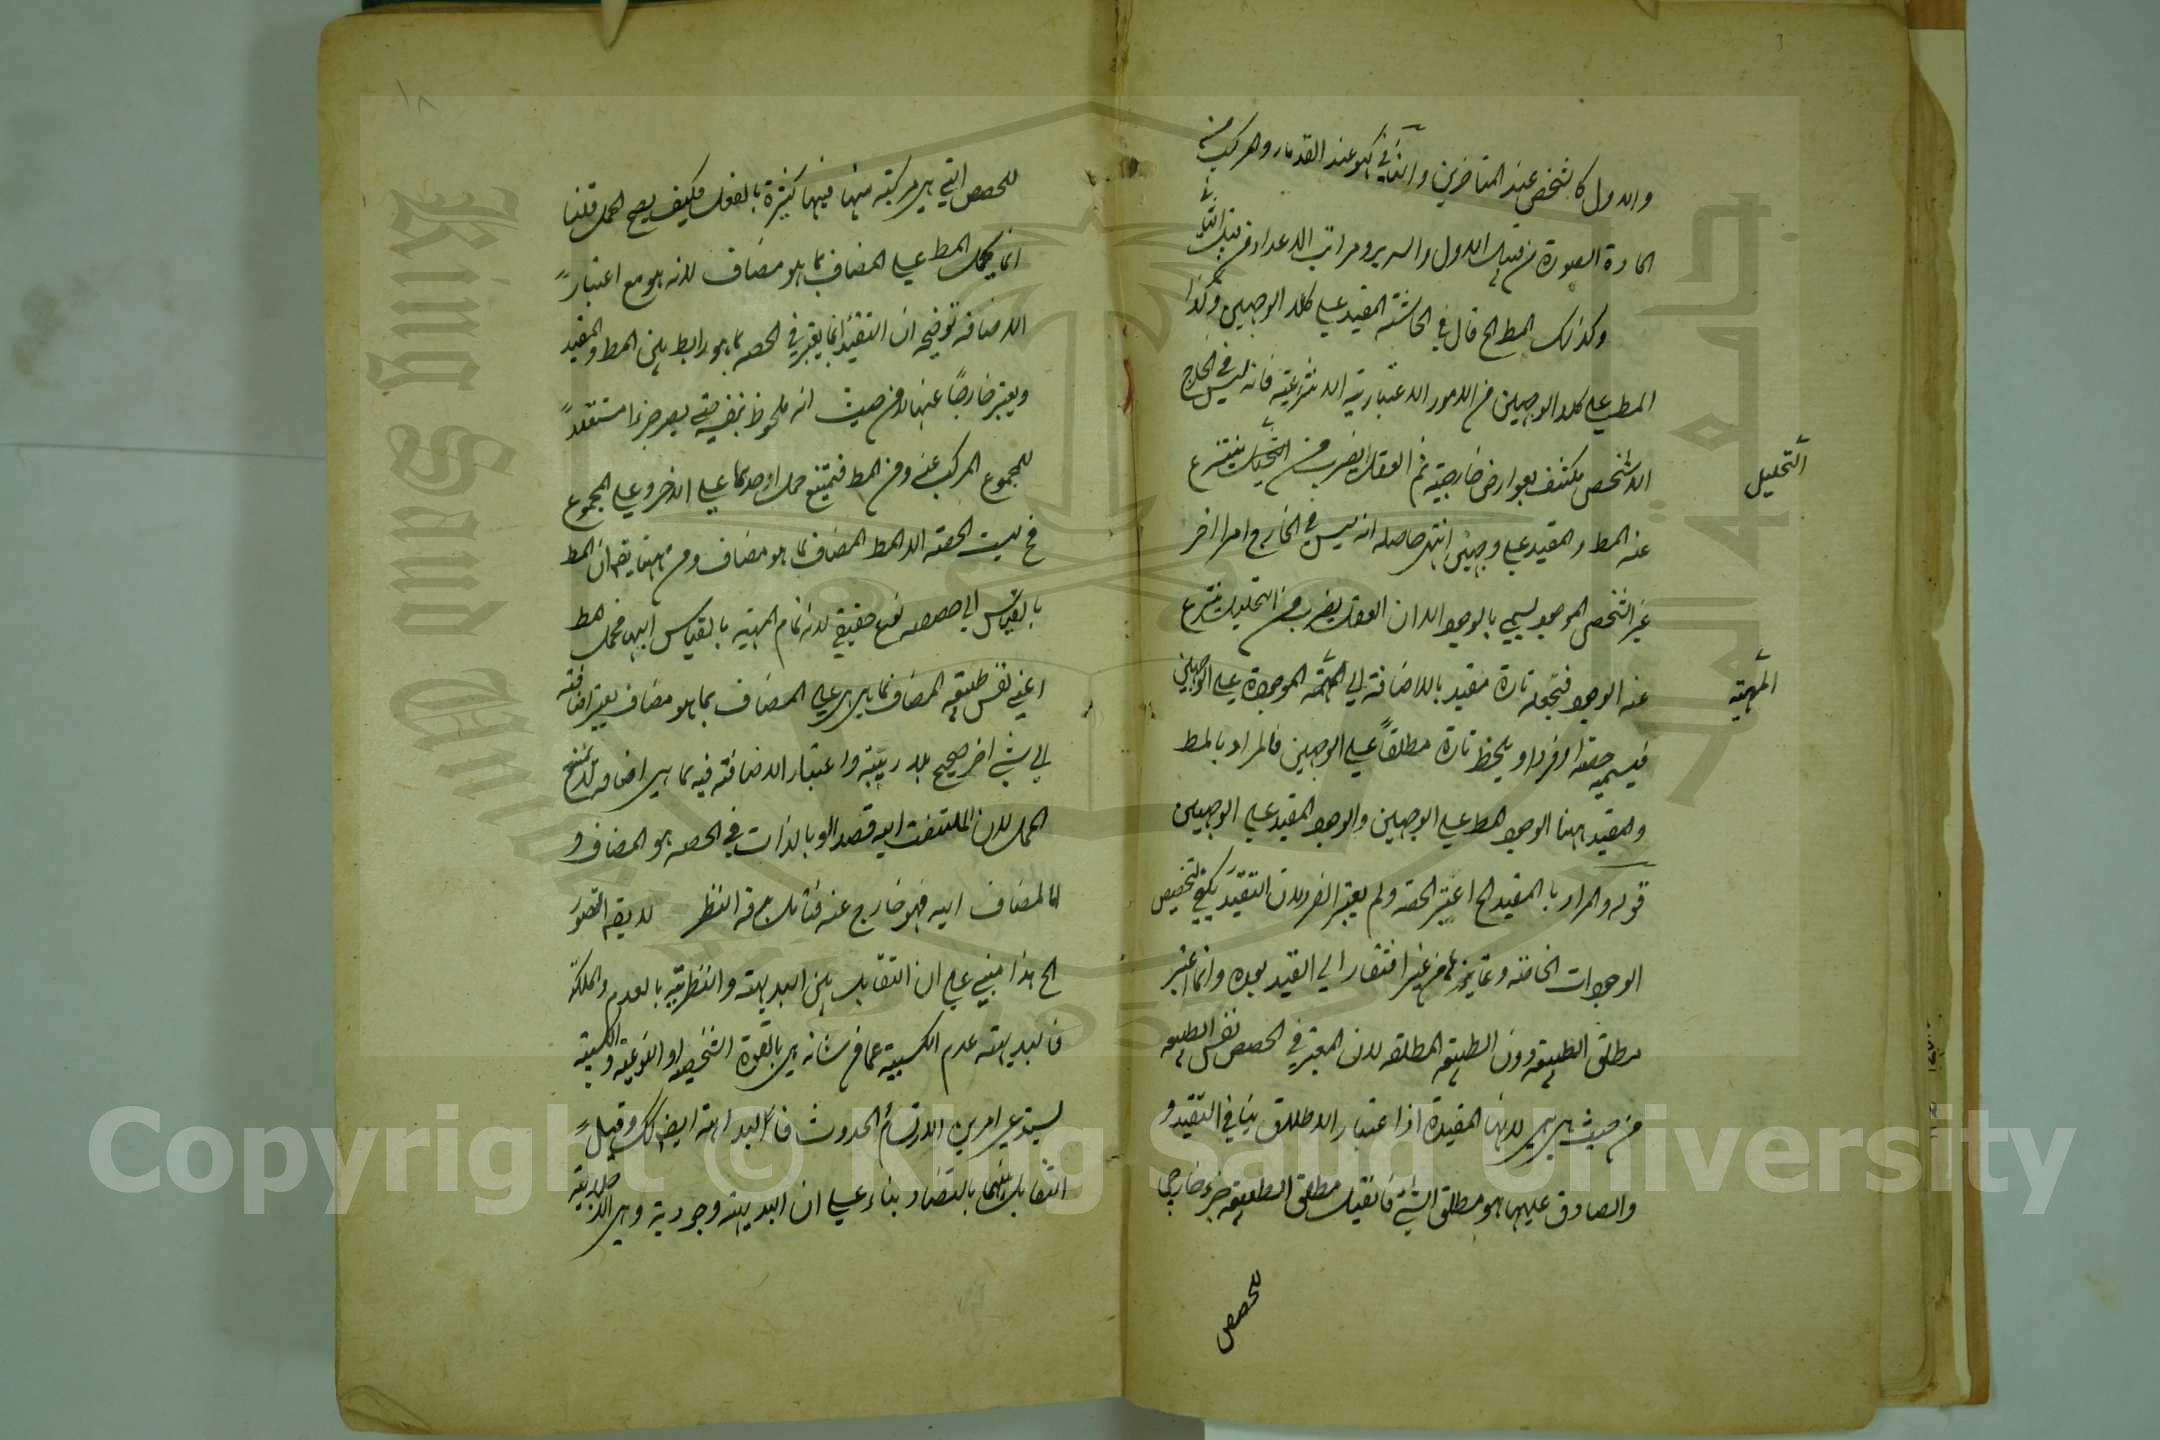 والاول كالشخص عند المتاخرين والثاني كهو عند القدماء والمركب من
المادة الصورة من قبيل الاول والسرير ومراتب الاعداد من قبيل الثاني
وكذلك المط الخ قال في الحاشية المقيد على كلا الوجهين وكذا
المط على كلا الوجهين من الامور الاعتبارية الانتزاعية فانه ليس في الخارج
الا شخص مكتنف بعوارض خارجية ثم العقل بضرب من التحليل ينتزع
التحليل
عنه المط والمقيد على وجهين انتهى حاصله انه ليس في الخارج امرا اخر
غير الشخص الموجود يسمى بالوجود الا ان العقل بضرب من التحليل ينتزع
عنه الوجود فتجعله تارة مقيد بالاضافة الى المهية الموجودة على الوجهين
المهية
فيسميه حصة او فردا ويلحظ تارة مطلقاً على الوجهين فالمراد بالمط
والمقيد ههنا الوجود المط على الوجهين والوجود المقيد على الوجهين
قوله والمراد بالمقيد الخ اعتبر الحصة ولم يعتبر الفرد لان التقيد يكفي لتخصيص
الوجودات الخاصة وتمايزها من غير افتقار الى القيد بعده وانما اعتبر
مطلق الطبيعة دون الطبيعة المطلقة لان المعتبر في الحصص نفس الطبيعة
من حيث هي هي لانها المقيدة اذا اعتبار الاطلاق ينافي التقيد و
والصادق عليها هو مطلق الشئ فان قيل مطلق الطبيعة جزء خارجي
للحصص
١٨
للحصص التي هي مركبة منها فيها كثيرة بالفعل فكيف يصح الحمل قلنا
انما يحمل المط على المضاف بما هو مضاف لا انه هو مع اعتبار
الاضافة توضيحه ان التقيد انما يعتبر في الحصة بما هو رابط بين المط والمقيد
ويعتبر خارجاً عنها لا من حيث انه ملحوظ بنفسه حتى يصير جزءا مستقلاً
للمجموع المركب عنه ومن المط فيمتنع حمل احدهما على الاخر وعلى المجموع
فح ليست الحصة الا المط المضاف بما هو مضاف ومن ههنا يق ان المط
بالقياس الى حصصه نوع حقيقي لانه تمام المهية بالقياس اليها فحمل المط
اعني نفس طبيعة المضاف بما هي هي على المضاف بما هو مضاف يعتبر اضافته
الى شئ اخر صحيح بلا ريبة واعتبار الاضافة فيه بما هي اضافة لا يمنع
الحمل لان الملتفت اليه قصدا وبالذات في الحصة هو المضاف و
اما المضاف اليه فهو خارج عنه فتامل حق النظر لا يق التصور
الخ هذا مبني على ان التقابل بين البديهة والنظرية بالعدم والملكة
فالبديهة عدم الكسبية عما من شانه هي بالقوة الشخصية او النوعية والكسبية
يستدعي امرين الارتسام الحدوث فالبداهة ايض كك وقيل
التقابل بينهما بالتضاد بناء على ان البديهة وجودية وهي اللابدية